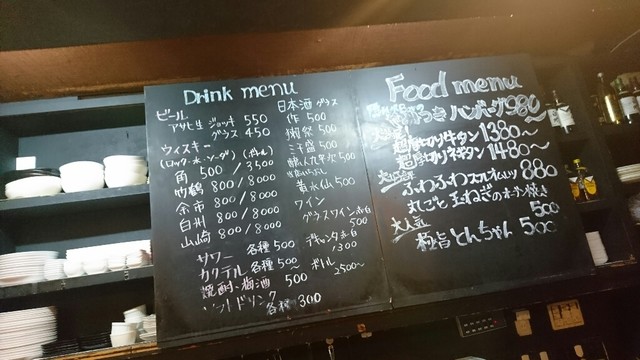 Drink menu
ビール
アサヒ生 ジョッキ 550
グラス 450
ウィスキー
(ロック・水・ソーダ) (ボトル)
角 500 / 3500
竹鶴 800 / 8000
余市 800 / 8000
白州 800 / 8000
山崎 800 / 8000
サワー 各種 500
カクテル 各種 500
焼酎・梅酒 500
ソフトドリンク
各種 300
日本酒 グラス
作 500
獺祭 500
三千盛 500
酔人九平次 500
黄水仙 500
ワイン
グラスワイン 赤白
500
デキャンタ 赤白
1300
ボトル
2500~
Food menu
ハンバーグ 980~
超厚切り牛タン 1380~
超厚切りネギタン 1480~
ふわふわスフレオムレツ 880
丸ごと玉ねぎのオーブン焼き
500
大人気
極旨とんちゃん 500